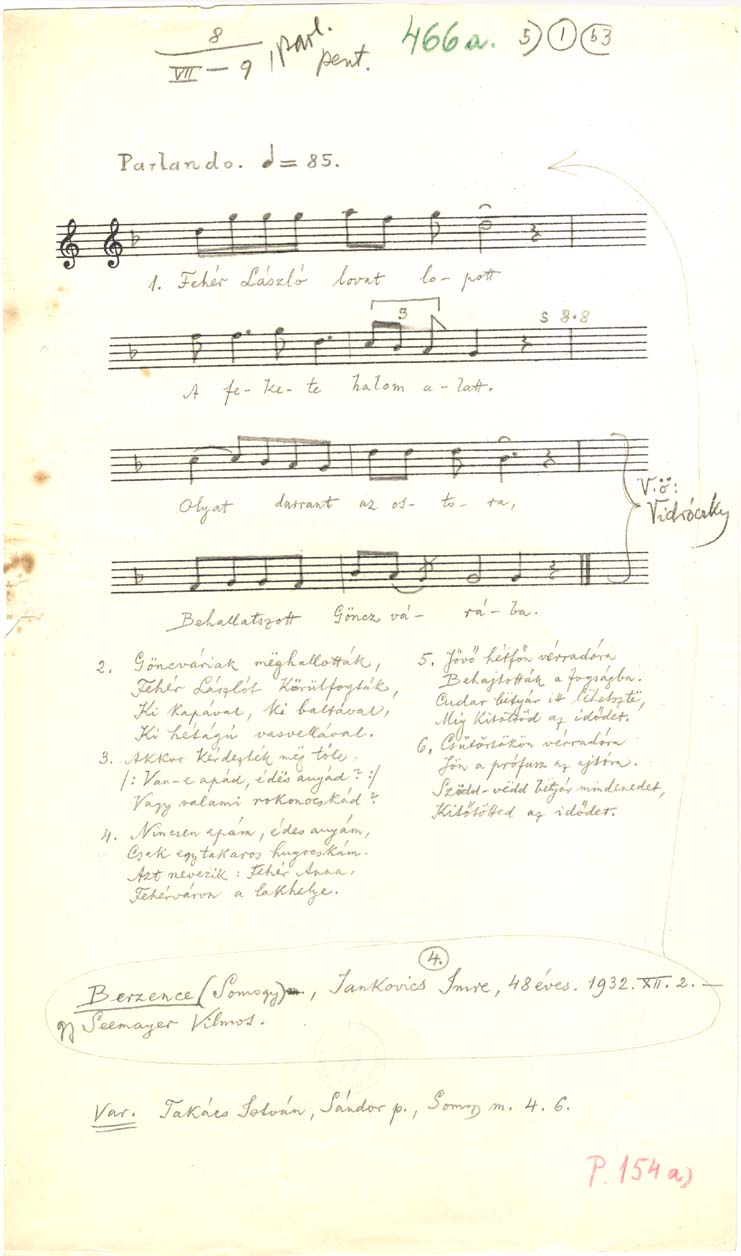 8
VII – 9, parl. pent.
466a. 5) 1 b3
Parlando. ♩ = 85.
1. Fehér László lovat lo- pott
5
5 8.8
A fe- ke- te halom a- latt.
Olyat durrant az os- to- ra,
V.ö: Vidróczky
Behallatszott Göncz vá- rá- ba.
2. Göncváriak mëghallották,
Fehér Lászlót körülfogták,
Ki kapával, ki baltával,
Ki hétágú vasvellával.
3. Akkor kérdezték mëg tőle,
/: Van-e apád, édës anyád? :/
Vagy valami rokonocskád?
4. Nincsen apám, édes anyám,
Csak egy takaros hugocskám.
Azt nevezik: Fehér Anna,
Fehérváron a lakhelye.
5. Jövő hétfőn vérradóra
Behajtották a fogságba.
Cudar bëtyár itt lëhetszte,
Mig kitőtőd az idődet.
6. Csütörtökön vérradóra
Jön a prófusz az ajtóra.
Szödd-vëdd bëtyár mindenedet,
Kitőtötted az idődet.
4.
Berzence (Somogy), Jankovics Imre, 48 éves. 1932. XII. 2. –
gy Seemayer Vilmos.
Var. Takács István, Sándor p., Somogy m. 4. 6.
P. 154 a)